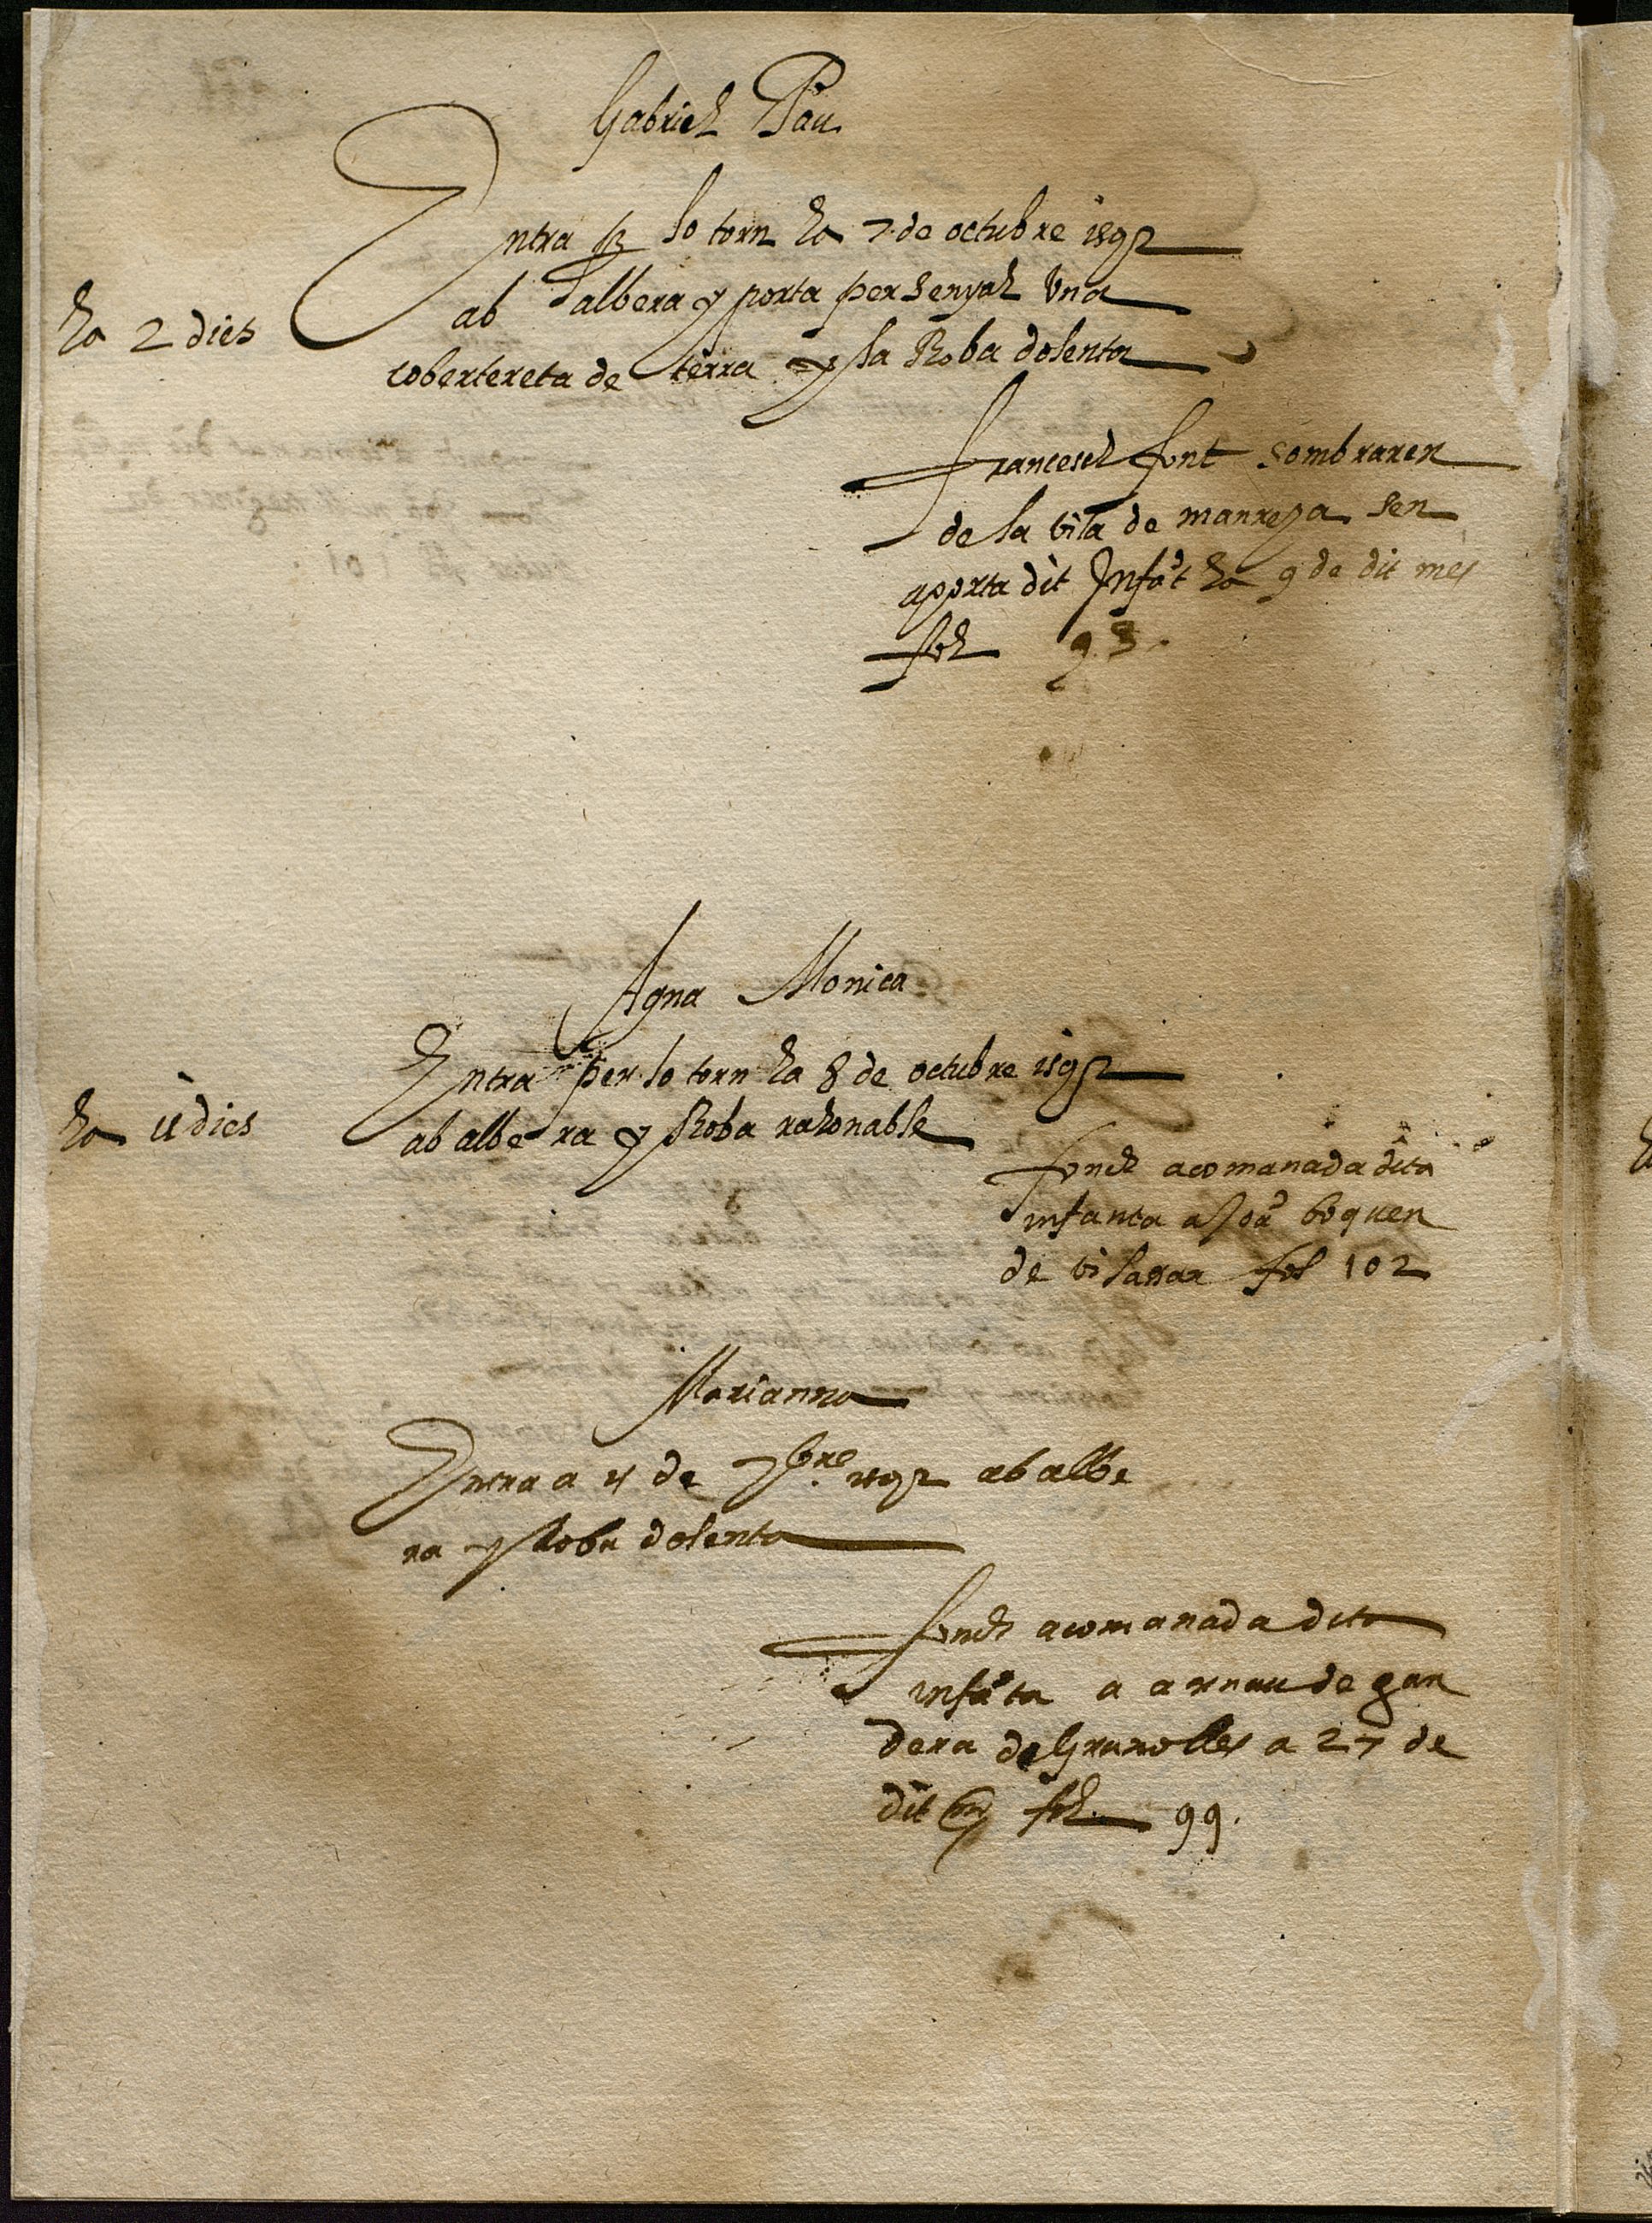 Gabriel Pau
Entra p lo torn ha 7 de octubre 1592
ha 2 dies
ab albera y porta per senyal una
cobertereta de terra y la Roba dolenta
Francesch font sombrarer
de la vila de manresa sen
aporta dit Infāt ha 9 de dit mes
fol 93
Agna Monica
Entra per lo torn ha 8 de octubre 1592
ha 11 dies
ab albera y Roba rahonable
fonch acomanada dita
infanta a Joā boquer
de vilassar fol 102
Marianna
Entra a 11 de 1592 ab albe
ra y Roba dolenta
fonch acomanada dita
infāta a arnau de gan
dera de Granolles a 27 de
dit fol 99.